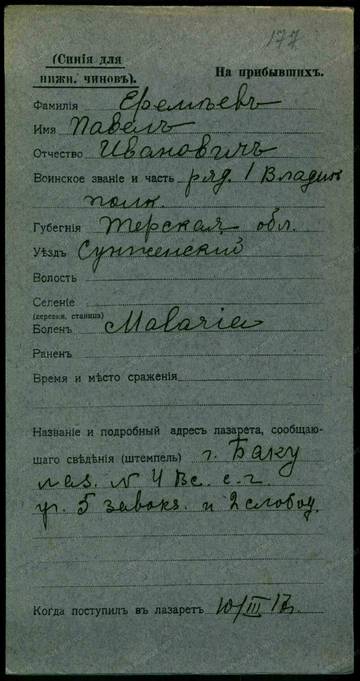 177
(Синія для
нижн. чиновъ).
На прибывшихъ.
Фамилія Еремѣевъ
Имя Павелъ
Отчество Ивановичъ
Воинское званіе и часть ряд. 1 Владик
полк
Губернія Терская обл.
Уѣздъ Сунженский
Волость
Селеніе
(деревня, станица)
Боленъ Малярія
Раненъ
Время и мѣсто сраженія
Названіе и подробный адресъ лазарета, сообщаю-
щаго свѣдѣнія (штемпель) г. Баку
лаз. № 4 Вс. с. г.
уг. 5 завокз. и 2 слобод.
Когда поступилъ въ лазаретъ 10/III 17г.